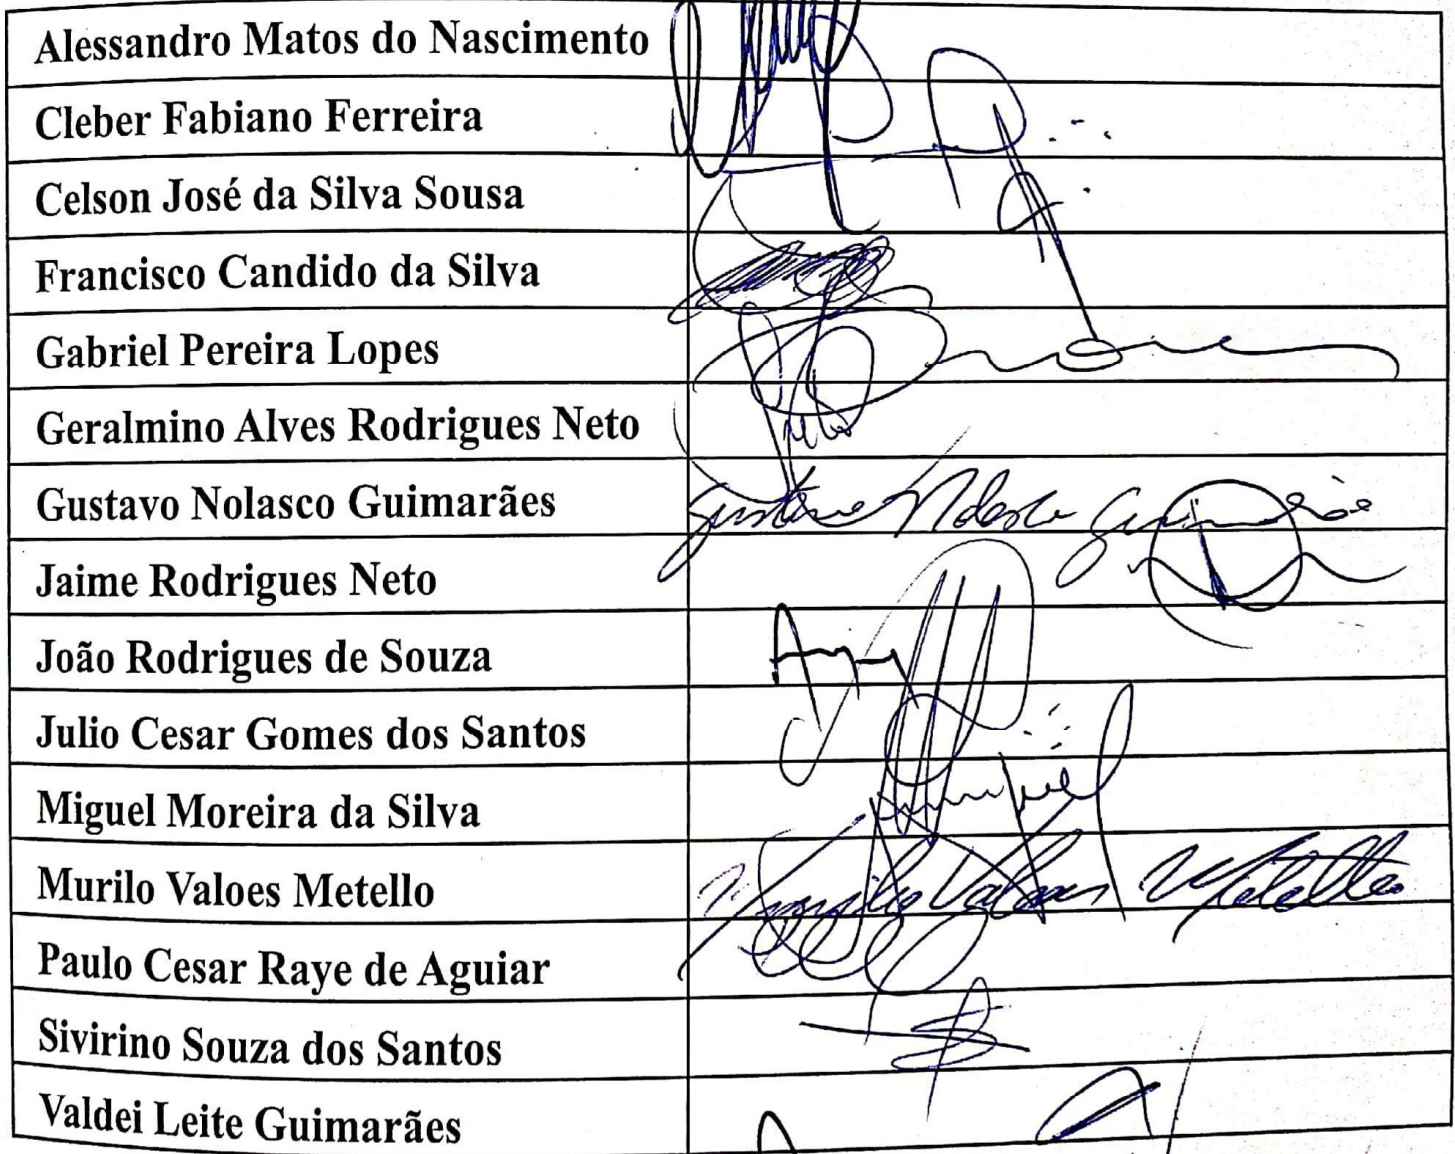 Alessandro Matos do Nascimento
Cleber Fabiano Ferreira
Celson José da Silva Sousa
Francisco Candido da Silva
Gabriel Pereira Lopes
Geralmino Alves Rodrigues Neto
Gustavo Nolasco Guimarães
Gustavo Nolasco Guimarães
Jaime Rodrigues Neto
João Rodrigues de Souza
Julio Cesar Gomes dos Santos
Miguel Moreira da Silva
Miguel
Murilo Valoes Metello
Murilo Valoes Metello
Paulo Cesar Raye de Aguiar
Sivirino Souza dos Santos
Valdei Leite Guimarães